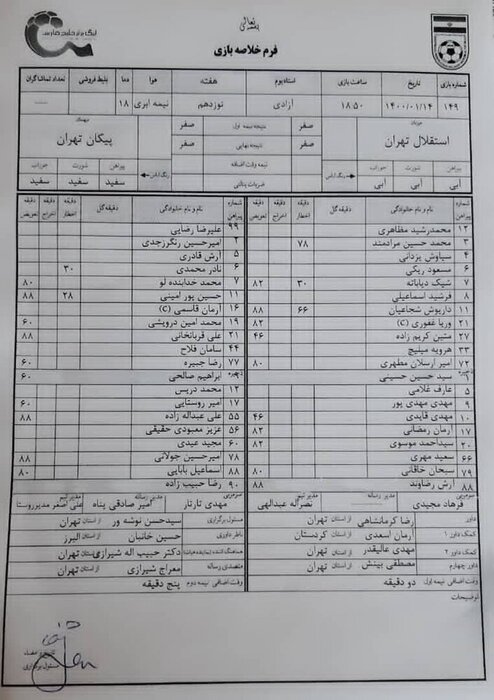 بسمه تعالی
لیگ برتر خلیج فارس
فرم خلاصه بازی
شماره بازی تاریخ ساعت بازی استادیوم هفته هوا دما بلیط فروشی تعداد تماشاگران
۱۴۹ ۱۴۰۰/۰۱/۱۴ ۱۸:۵۰ آزادی نوزدهم نیمه ابری ۱۸
میزبان استقلال تهران صفر نتیجه نیمه اول صفر میهمان پیکان تهران
صفر نتیجه نهایی صفر
نیمه وقت اضافه
ضربات پنالتی
پیراهن شورت جوراب رنگ لباس پیراهن شورت جوراب
آبی آبی آبی سفید سفید سفید
شماره پیراهن نام و نام خانوادگی دقیقه گل دقیقه اخطار دقیقه اخراج دقیقه تعویض شماره پیراهن نام و نام خانوادگی دقیقه گل دقیقه اخطار دقیقه اخراج دقیقه تعویض
۱۲ محمدرشید مظاهری ۹۹ علیرضا رضایی
۳ محمد حسین مرادمند ۷۸ ۲ امیرحسین رنگرزجدی
۴ سیاوش یزدانی ۵ آرش قادری
۶ مسعود ریگی ۶ نادر محمدی ۳۰
۷ شیک دیاباته ۳۰ ۸۲ ۷ محمد خدابنده لو ۸۰
۸ فرشید اسماعیلی ۱۱ حسین پور امینی ۲۸ ۸۸
۱۱ داریوش شجاعیان ۶۶ ۸۸ ۱۶ آرمان قاسمی (C)
۲۱ وریا غفوری (C) ۸۲ ۱۹ محمد امین درویشی ۶۰
۲۷ متین کریم زاده ۴۶ ۲۱ علی قربانخانی ۸۸
۳۳ هرویه میلیچ ۴۴ سامان فلاح
۷۲ امیر ارسلان مطهری ۸۰ ۷۷ رضا جبیره ۶۰
ذخیره ۱ سید حسین حسینی ذخیره ۱ ابراهیم صالحی ۶۰
۵ عارف غلامی ۱۲ محمد دریس
۹ مهدی مهدی پور ۱۷ امیر روستایی ۶۰
۱۰ مهدی قایدی ۴۶ ۵۵ علی عبداله زاده ۸۸
۱۷ آرمان رمضانی ۸۲ ۵۶ عزیز معبودی حقیقی
۲۰ سیداحمد موسوی ۸۲ ۶۰ مجید عیدی
۶۶ سعید مهری ۷۸ امیرحسین جولانی ۸۸
۷۹ سبحان خاقانی ۸۰ ۸۸ اسماعیل بابایی ۸۰
۸۸ آرش رضاوند ۸۸ ۹۰ رضا حبیب زاده
سرمربی فرهاد مجیدی مدیر رسانه مدیر تیم نصراله عبدالهی سرمربی مهدی تارتار مدیر رسانه امیر صادقی پناه مدیر تیم علی اصغر مدیرروستا
داور رضا کرمانشاهی از استان تهران مسئول برگزاری سیدحسن نوشه ور از استان تهران
کمک داور ۱ آرمان اسعدی از استان کردستان ناظر داوری حسین خانبان از استان البرز
کمک داور ۲ مهدی عالیقدر از استان تهران هماهنگ کننده دکتر حبیب اله شیرازی از استان تهران
داور چهارم مصطفی بینش از استان تهران متصدی رسانه معراج شیرازی از استان تهران
وقت اضافی نیمه اول دو دقیقه وقت اضافی نیمه دوم پنج دقیقه
توضیحات
مسئول برگزاری